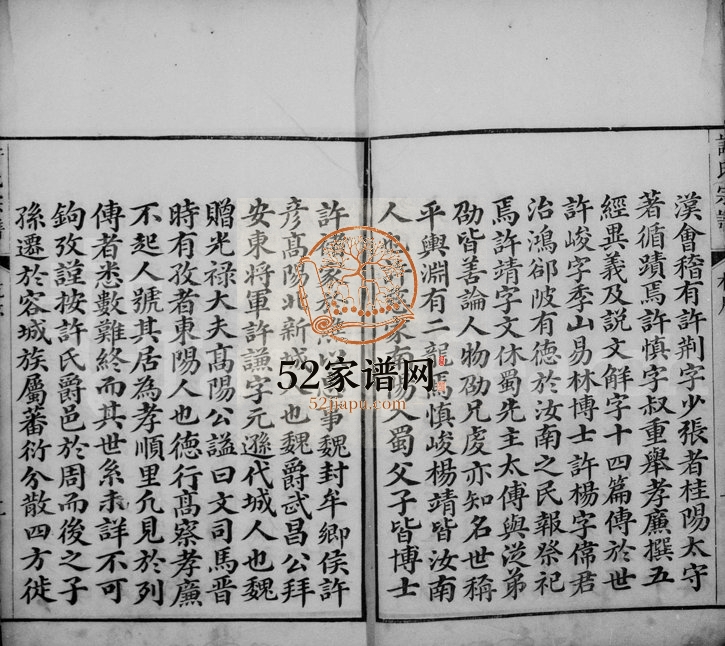 漢會稽有許荆字少張者桂陽太守
著循蹟焉許慎字叔重舉孝廉撰五
經異義及説文解字十四篇傳於世
許峻字季山易林博士許楊字偉君
治鴻郤陂有德於汝南之民報祭祀
焉許靖字文休蜀先主太傅與從弟
劭皆善論人物劭兄虔亦知名世稱
平輿淵有二龍焉慎峻楊靖皆汝南
人也許慈 南陽人 蜀父子皆博士
許 家 事魏封牟鄉侯許
彦髙陽北新城人也魏爵武昌公拜
安東將軍許謙字元遜代城人也魏
贈光禄大夫髙陽公謚曰文司馬晋
時有孜者東陽人也德行髙察孝廉
不起人號其居為孝順里凢見於列
傳者悉數難終而其世系未詳不可
鉤攷謹按許氏爵邑於周而後之子
孫遷於容城族屬蕃衍分散四方徙
52家谱网
52jiapu.com